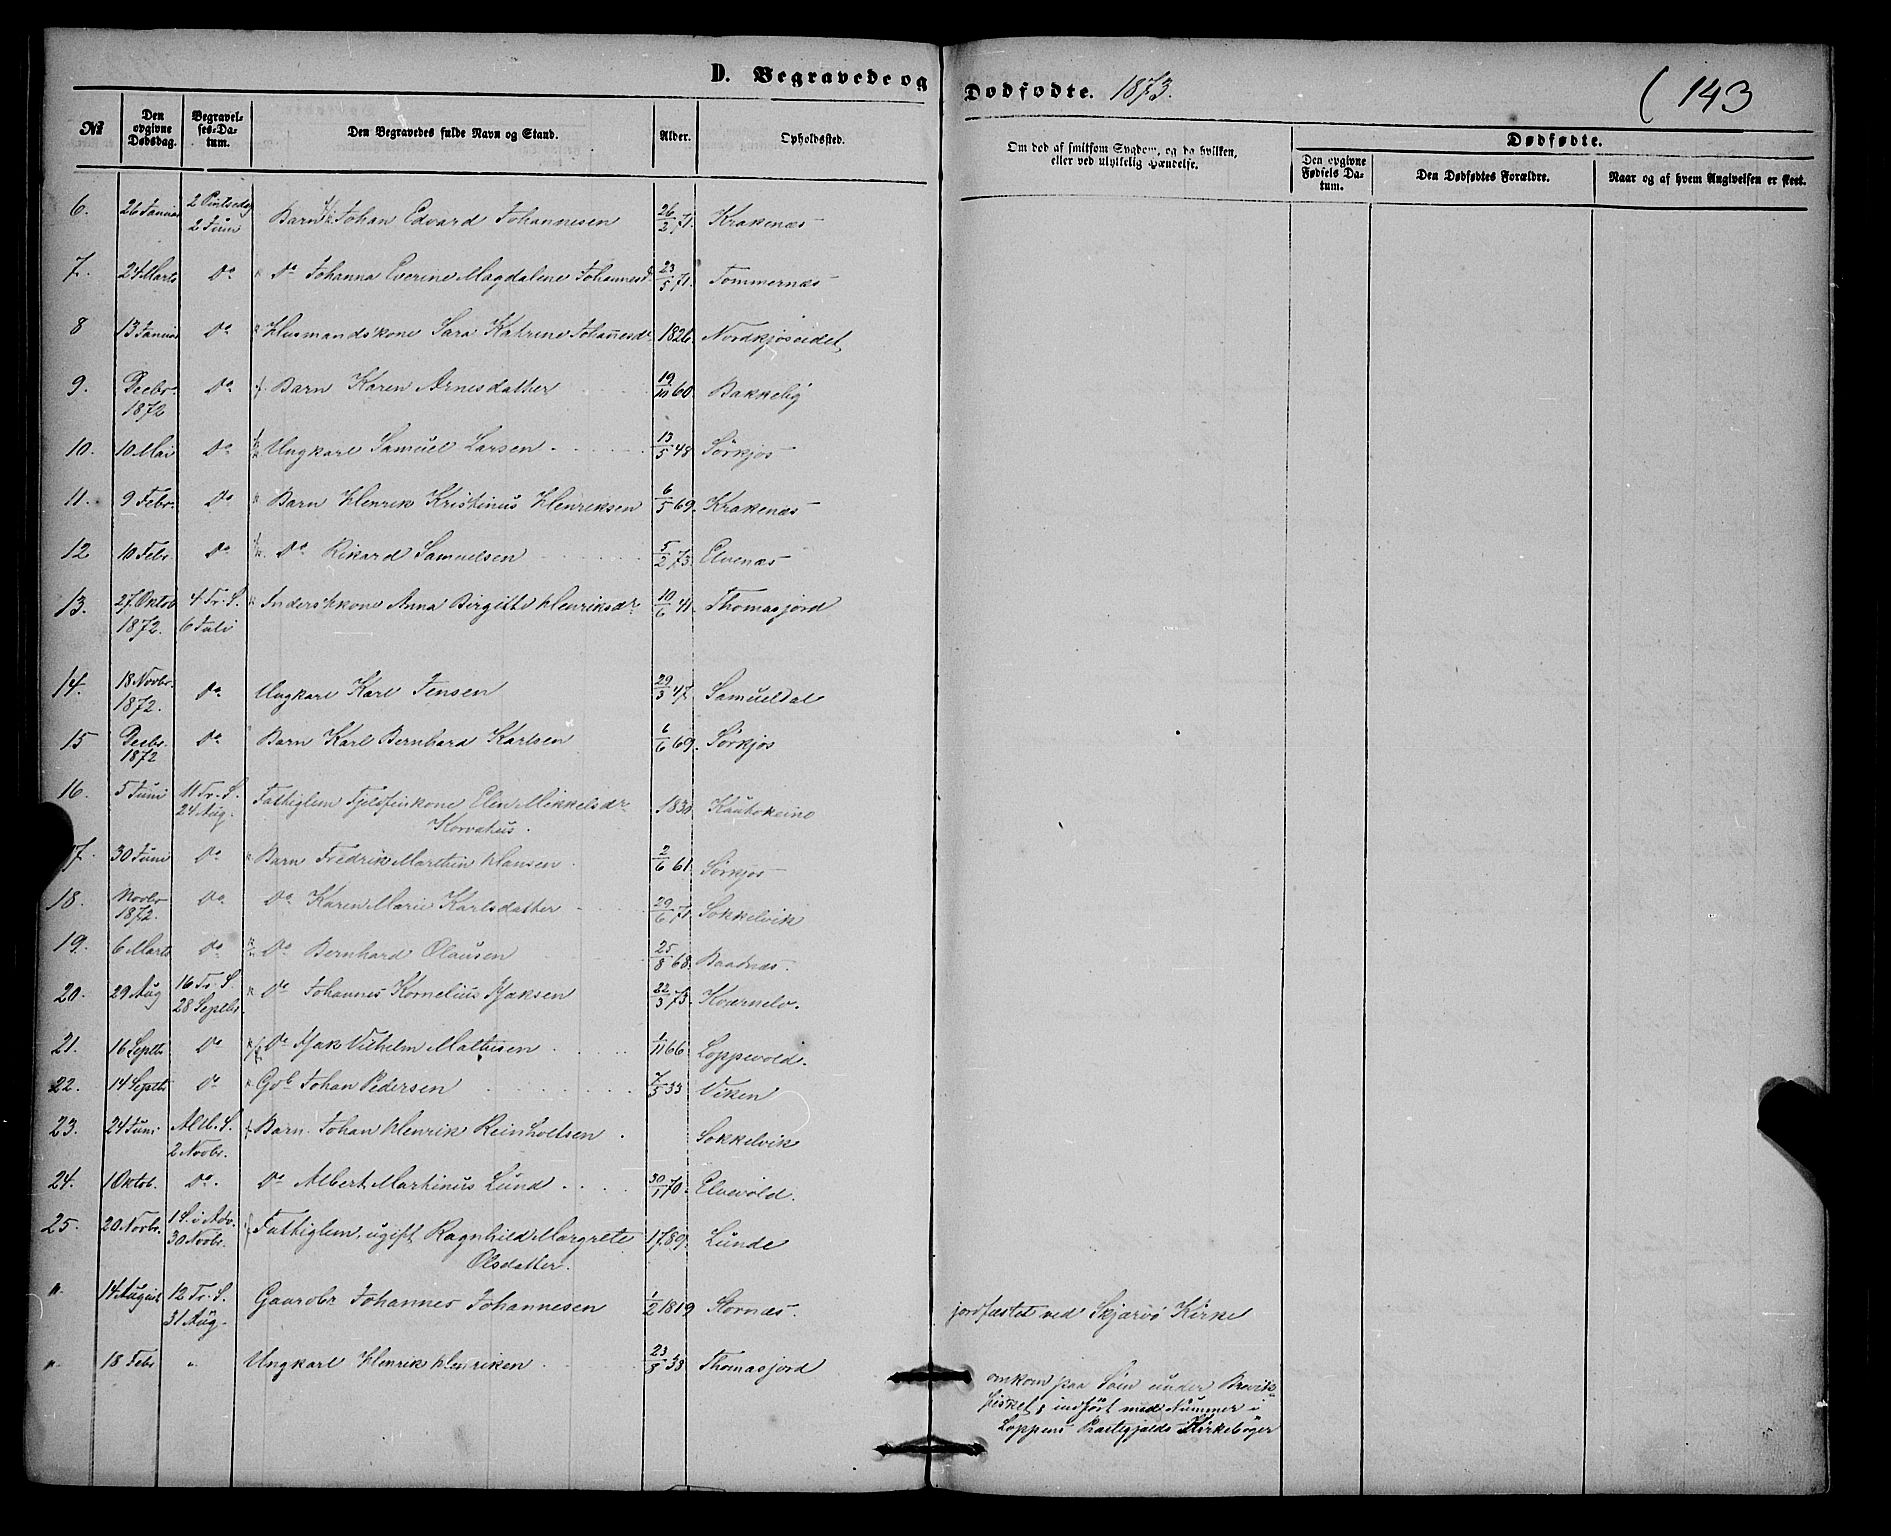 D. Begravede og Dødfødte. 1873. (143
№ Den opgivne Dødsdag. Begravelses-Datum. Den Begravedes fulde Navn og Stand. Alder. Opholdssted. Om død af smitsom Sygdom, og da hvilken, eller ved ulykkelig Hændelse. Dødfødte.
Den opgivne Fødsels Datum. Den Dødfødtes Forældre. Naar og af hvem Angivelsen er skeet.
6. 26 Januar 2 Pintsedag Barn Johan Edvard Johannesen 26/2 71. Krakenæs
2 Juni
7. 24 Marts Do Do Johanna Everine Magdalene Johannesd. 23/5 71. Tommernæs
8 13 Januar Do Husmandskone Sara Katrine Johannesdr. 1826 Nordkjoseidet
9. Decbr. Do Barn Karen Arnesdatter 19/10 60. Bakkelig
1872
10. 10 Mai Do Ungkarl Samuel Larsen 13/5 48 Sørkjos
11. 9 Febr. Do Barn Henrik Kristinus Henriksen 6/5 69. Krakenæs
12 10 Febr Do Do Rikard Samuelsen 5/2 73. Elvenæs
13. 27 Oktob 4 Tr. S. Inderstkone Anna Birgitte Henriksdr 10/6 41. Thomasjord
1872. 6 Juli
14. 18 Novbr. Do Ungkarl Karl Jensen 29/3 47. Samueldal
1872.
15 Decbr. Do Barn Karl Bernhard Karlsen 6/6 69. Sørkjos
1872
16. 5 Juni 11 Tr. S. Fattiglem Fjeldfinkone Elen Mikkelsdr 1830 Kautokeino
24 Aug. Korvatus.
17. 30 Juni Do Barn Fredrik Marthin Hansen 2/6 61. Sørkjos
18. Novbr Do Do Karen Marie Karlsdatter 29/6 71. Sokkelvik
1872.
19. 6 Marts Do Do Bernhard Olausen 25/8 68. Baadnæs.
20. 29 Aug 16 Tr. S. Do Johannes Kornelius Isaksen 22/3 73. Kværnelv.
28 Septbr.
21. 16 Septbr Do Do Isak Vilhelm Mathisen 1/11 66. Loppevold.
22. 14 Septbr Do Gbr Johan Pedersen 7/5 33 Viken
23. 24 Juni Allh. S. Barn Johan Henrik Reinholtsen Sokkelvik
2 Novbr.
24. 1 Oktob. Do Do Albert Martinus Lund 30/1 70. Elvevold.
25. 20 Novbr. 1 S. i Adv. Fattiglem, ugift Ragnhild Margrete 1789. Lunde
30 Novbr. Olsdatter.
" 14 August 12 Tr. S. Gaardbr Johannes Johannesen 1/2 1819 Stornæs. jordfæstet ved Skjærvø Kirke
31 Aug.
" 18 Febr " Ungkarl Henrik Henriksen 23/8 38 Thomasjord
omkom paa Søen under
fisket; indført med Nummer i
Loppens Præstegjelds Kirkebøger